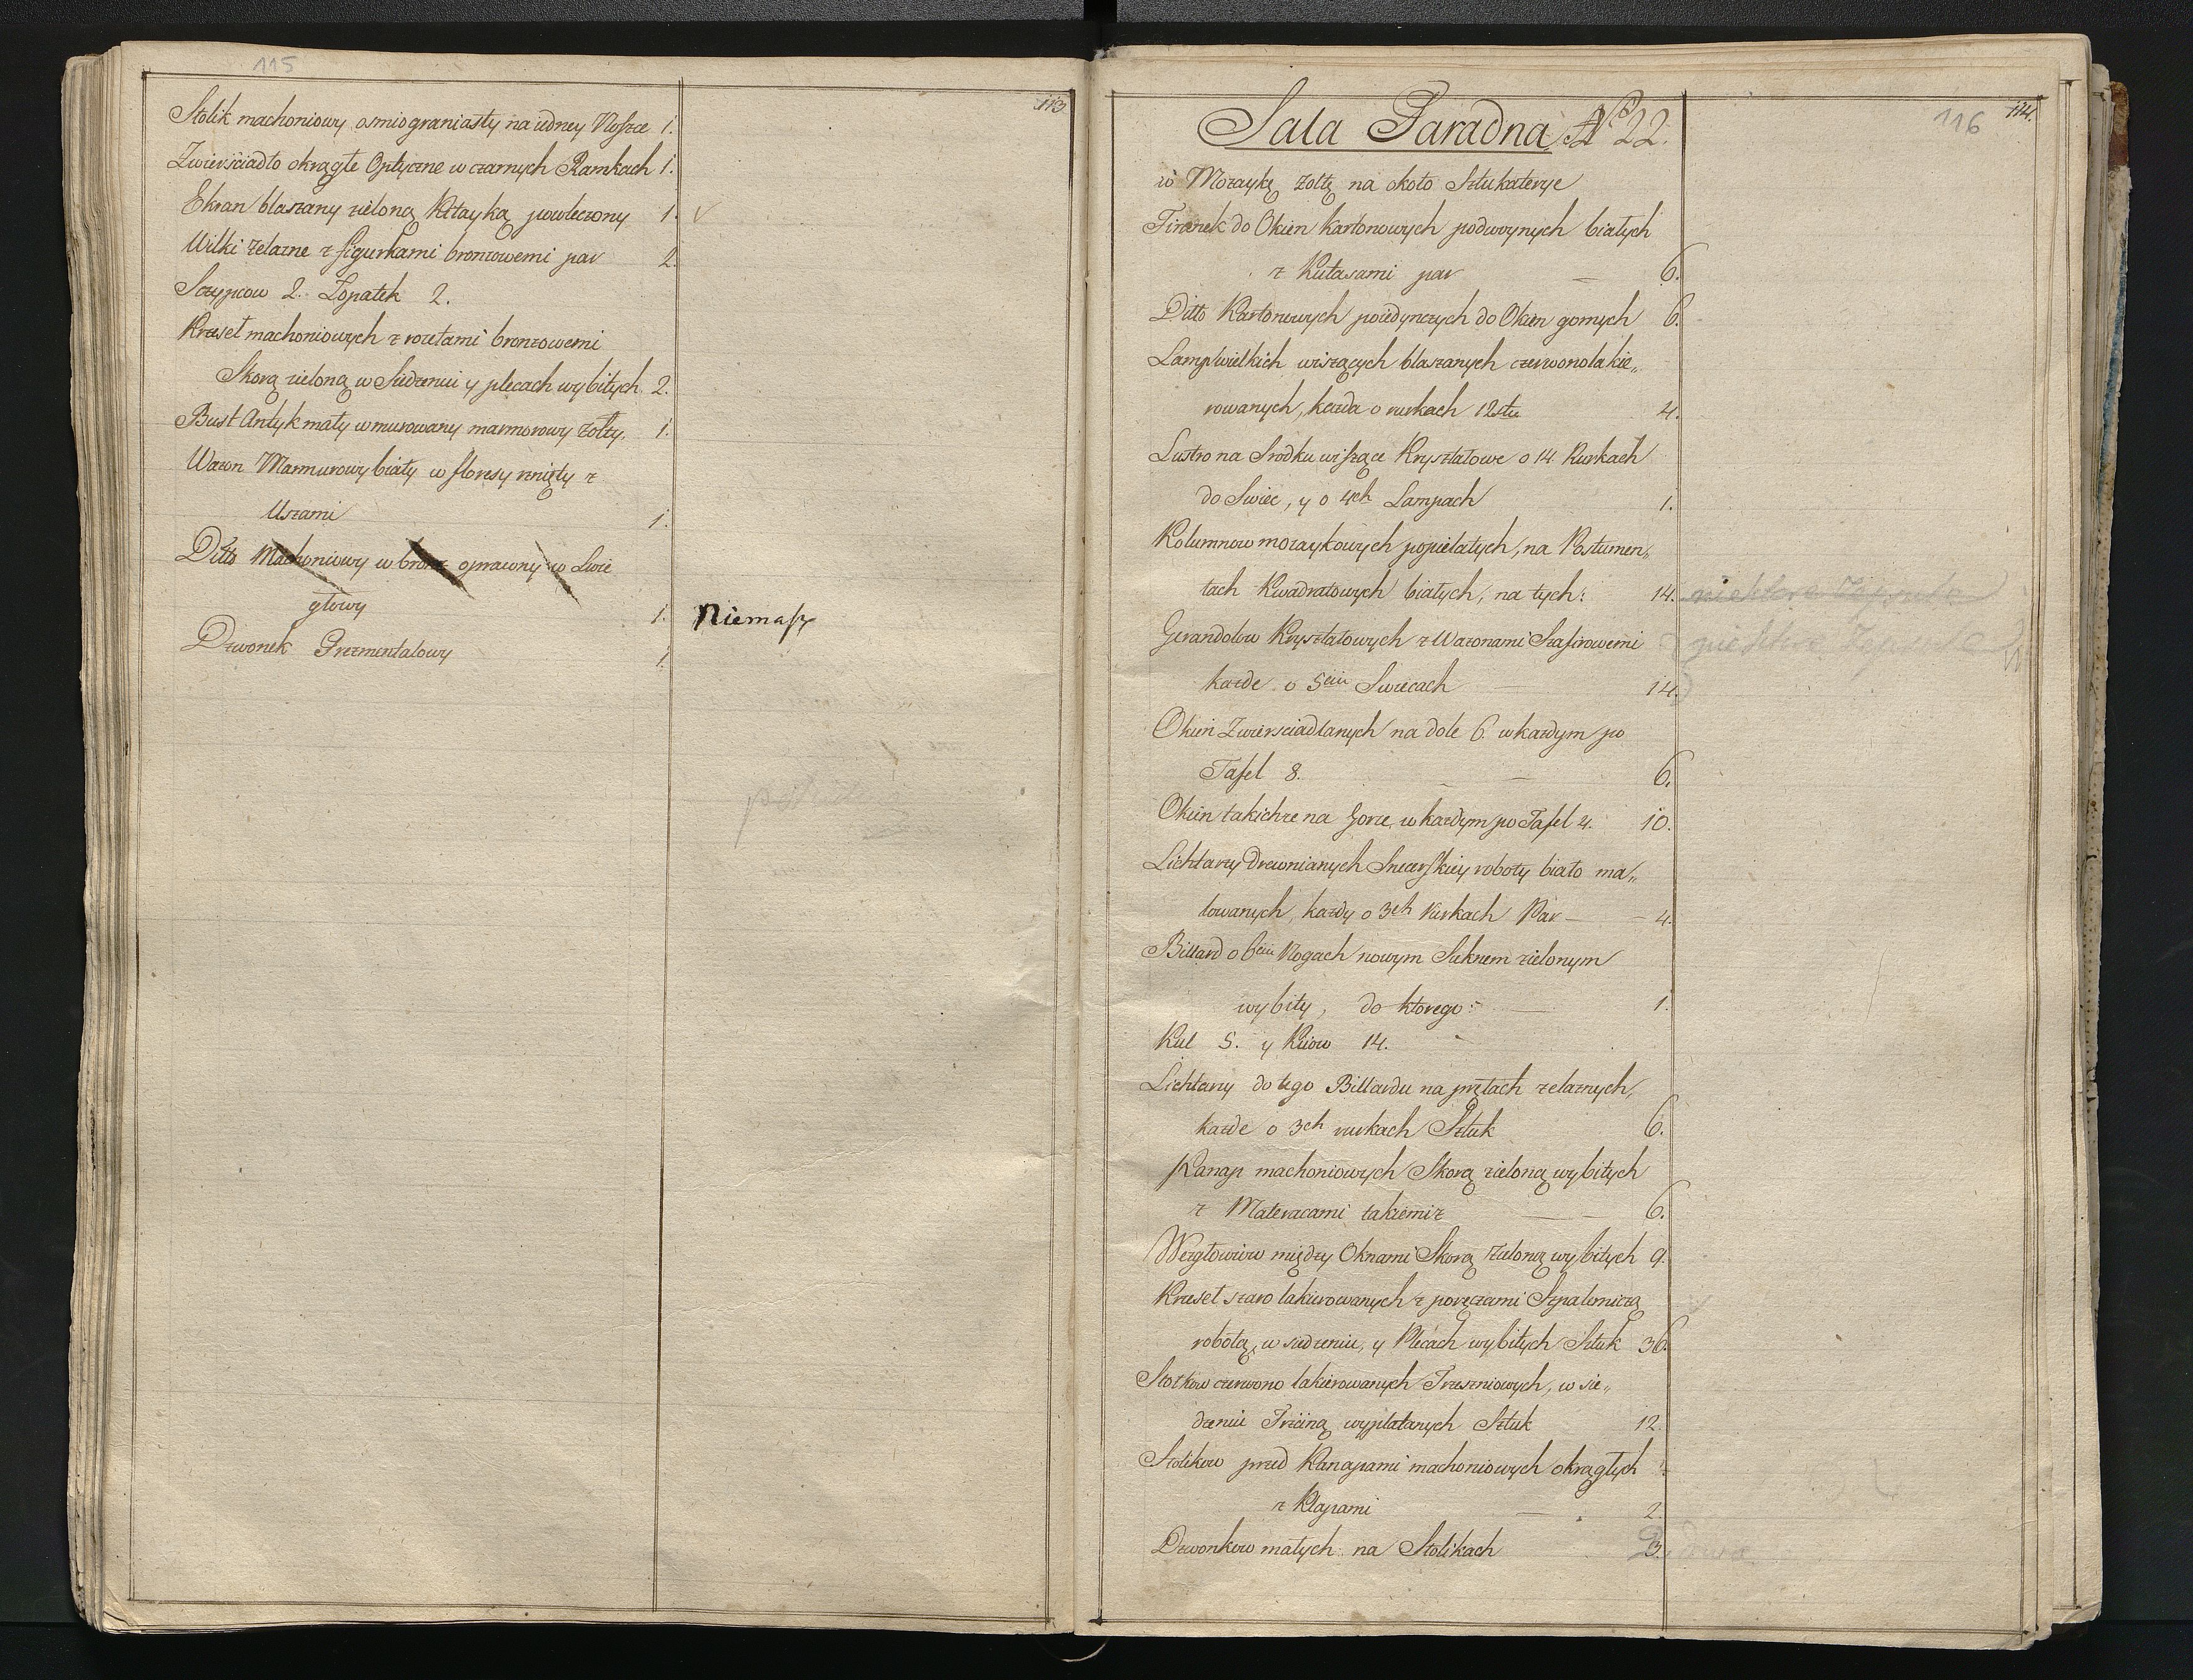 115
113
Stolik machoniowy osmiograniasty na iedney Nosze 1.
Zwierściadło okrągłe Optyczne w czarnych Ramkach 1.
Ekran blaszany zieloną Kitayką powleczony 1.
Wilki żelazne z figurkami bronzowemi par 2.
Szczypcow 2. Łopatek 2.
Krzeseł machoniowych z rozetami bronzowemi
Skorą zieloną w Siedzeniu y plecach wybitych 2.
Bust Antyk mały wmurowany marmorowy żółty. 1.
Wazon Marmurowy biały w floresy rznięty z
Uszami 1.
Ditto Machoniowy w bronz oprawny w Lwie
głowy 1. Niemasz
Dzwonek Prezmentalowy 1.
116
114.
Sala Paradna N° 22.
w Mozaykę żółtą na około Sztukaterye
Firanek do Okien kartonowych podwoynych białych
z Kutasami par 6.
Ditto Kartonowych poiedynczych do Okien gornych 6.
Lamp wielkich wiszących blaszanych czerwono lakie„
rowanych, każda o rurkach 12stu 4.
Lustro na Srodku wiszące Kryształowe o 14 Rurkach
do Swiec, y o 4ch Lampach 1.
Kolumnow mozaykowych popielatych, na Postumen„
tach Kwadratowych białych, na tych: 14.
Gerandolow Kryształowych z Wazonami Szafirowemi
każde o 5ciu Swiecach 14.
Okien Zwierściadlanych na dole 6. w każdym po
Tafel 8. 6.
Okien takichże na Gorze, w każdym po Tafel 4. 10.
Lichtarzy Drewnianych Snicerskiey roboty biało ma„
lowanych, każdy o 3ch Rurkach Par 4.
Billard o 6ciu Nogach nowym Suknem zielonym
wybity, do ktorego: 1.
Kul 5. y Kiiow 14.
Lichtarzy do tego Billardu na prętach żelaznych,
każde o 3ch rurkach Sztuk 6.
Kanap machoniowych Skorą zieloną wybitych
z Materacami takiemiż 6.
Wezgłowiow między Oknami Skorą zieloną wybitych 9.
Krzeseł szaro lakierowanych z poręczami Szpalerniczą
robotą, w siedzeniu, y Plecach wybitych Sztuk 36.
Stołkow czerwono lakierowanych Trześniowych, w sie„
dzeniu Trzciną wyplatanych Sztuk 12.
Stolikow przed Kanapami machoniowych okrągłych
z Klapami 2.
Dzwonkow małych na Stolikach 3.